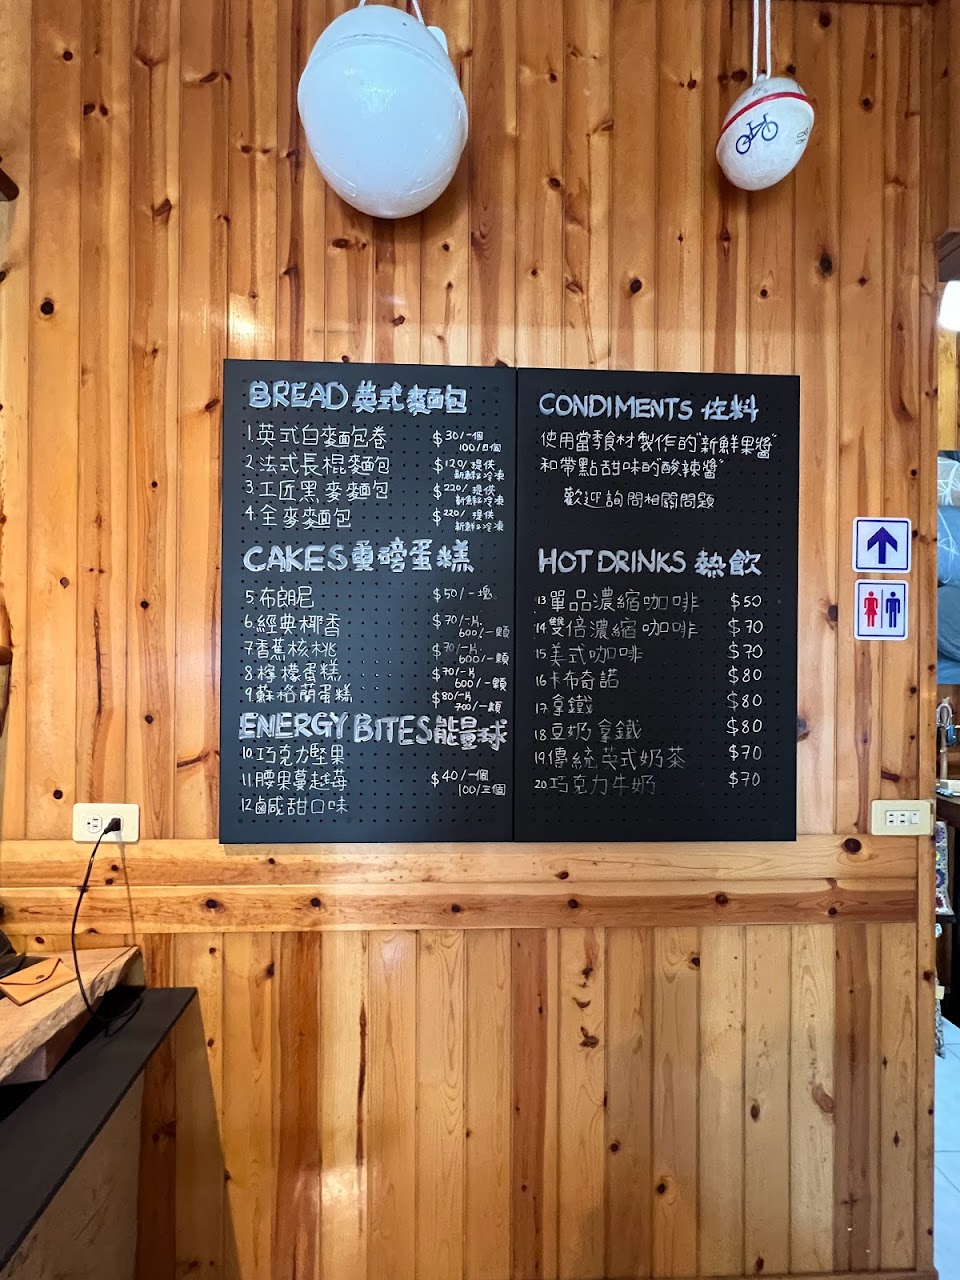 BREAD 英式麵包
1.英式白麵包卷 $30/一個
100/四個
2.法式長棍麵包 $120/提供
新鮮&冷凍
3.工匠黑麥麵包 $220/提供
新鮮&冷凍
4.全麥麵包 $220/提供
新鮮&冷凍
CAKES 重磅蛋糕
5.布朗尼 $50/一塊
6.經典椰香 $70/一片
600/一顆
7香蕉核桃 $70/一片
600/一顆
8.檸檬蛋糕 $70/一片
600/一顆
9蘇格蘭蛋糕 $80/一片
700/一顆
ENERGY BITES能量球
10.巧克力堅果
11.腰果蔓越莓 $40/一個
100/三個
12鹹甜口味
CONDIMENTS 佐料
使用當季食材製作的"新鮮果醬"
和帶點甜味的酸辣醬"
歡迎詢問相關問題
HOT DRINKS 熱飲
13單品濃縮咖啡 $50
14雙倍濃縮咖啡 $70
15美式咖啡 $70
16卡布奇諾 $80
17拿鐵 $80
18豆奶拿鐵 $80
19傳統英式奶茶 $70
20.巧克力牛奶 $70